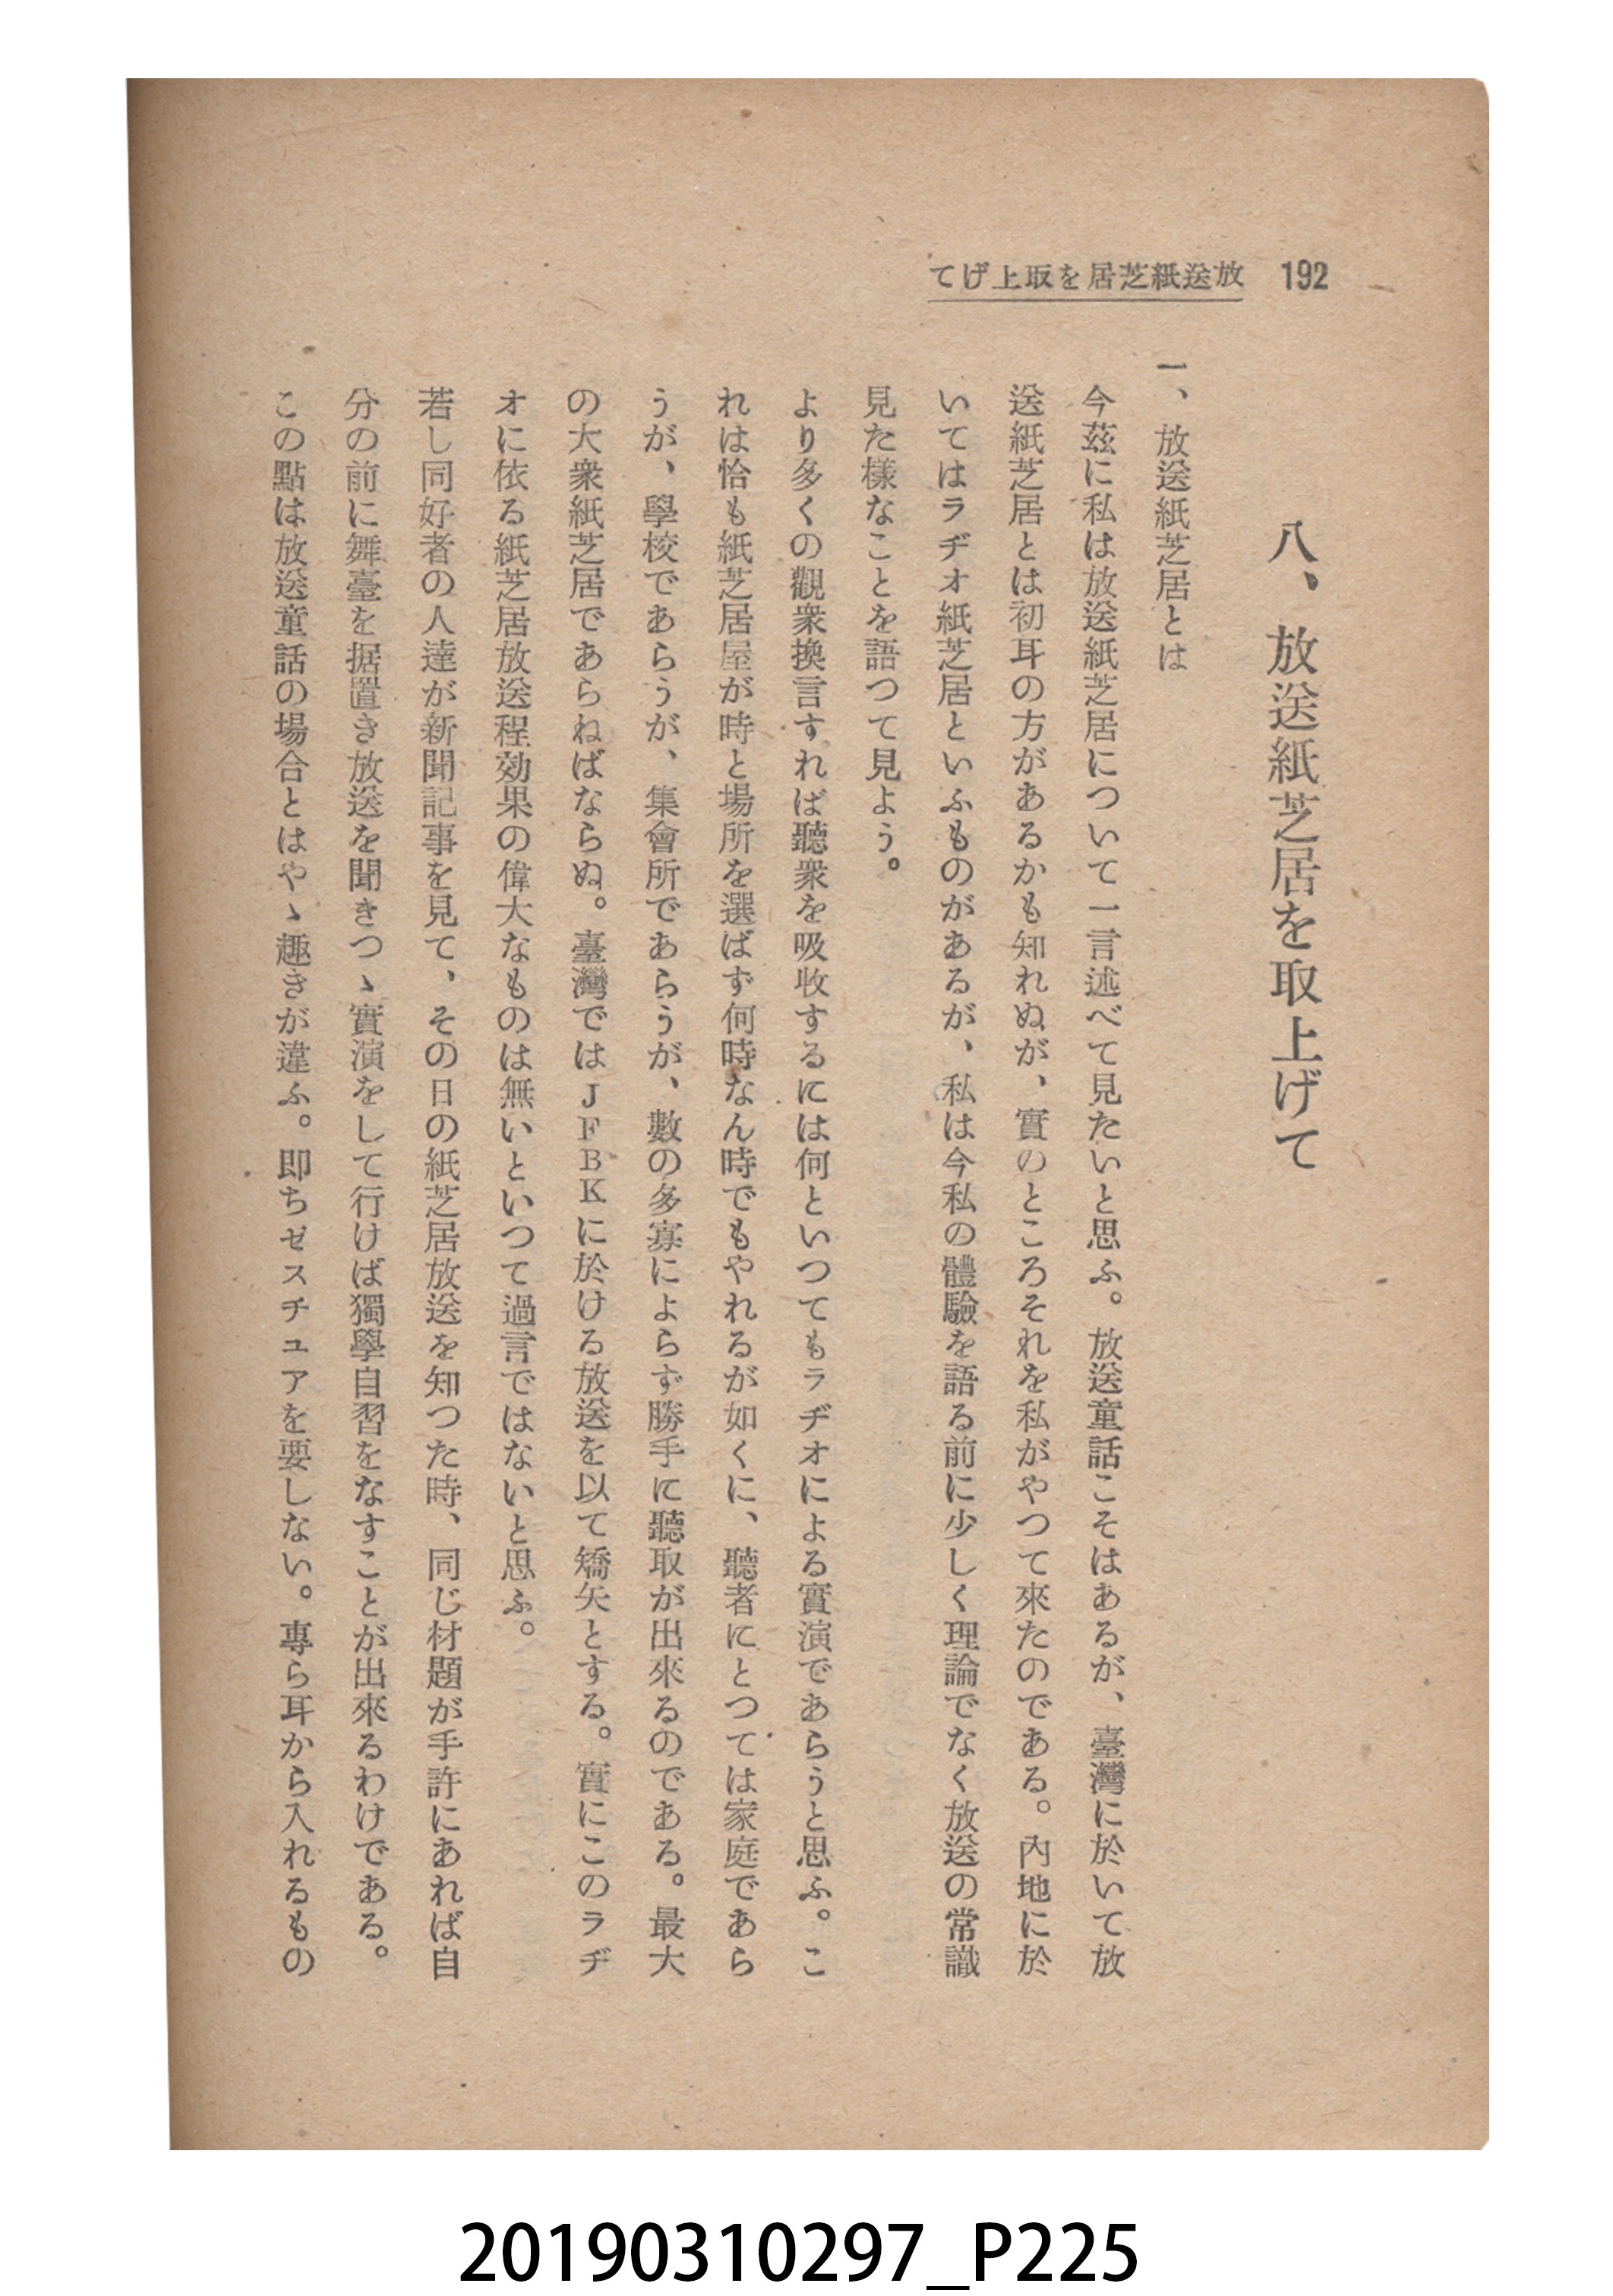 192 放送紙芝居を取上げて
八、放送紙芝居を取上げて
一、放送紙芝居とは
今茲に私は放送紙芝居について一言述べて見たいと思ふ。放送童話こそはあるが、臺灣に於いて放
送紙芝居とは初耳の方があるかも知れぬが、實のところそれを私がやつて來たのである。內地に於
いてはラヂオ紙芝居といふものがあるが、私は今私の體驗を語る前に少しく理論でなく放送の常識
見た樣なことを語つて見よう。
より多くの觀衆換言すれば聽衆を吸收するには何といつてもラヂオによる實演であらうと思ふ。こ
れは恰も紙芝居屋が時と場所を選ばず何時なん時でもやれるが如くに、聽者にとつては家庭であら
うが、學校であらうが、集會所であらうが、數の多寡によらず勝手に聽取が出來るのである。最大
の大衆紙芝居であらねばならぬ。臺灣ではJFBKに於ける放送を以て矯矢とする。實にこのラヂ
オに依る紙芝居放送程効果の偉大なものは無いといつて過言ではないと思ふ。
若し同好者の人達が新聞記事を見て、その日の紙芝居放送を知つた時、同じ材題が手許にあれば自
分の前に舞臺を据置き放送を聞きつゝ實演をして行けば獨學自習をなすことが出來るわけである。
この點は放送童話の場合とはやゝ趣きが違ふ。即ちゼスチュアを要しない。專ら耳から入れるもの
20190310297_P225